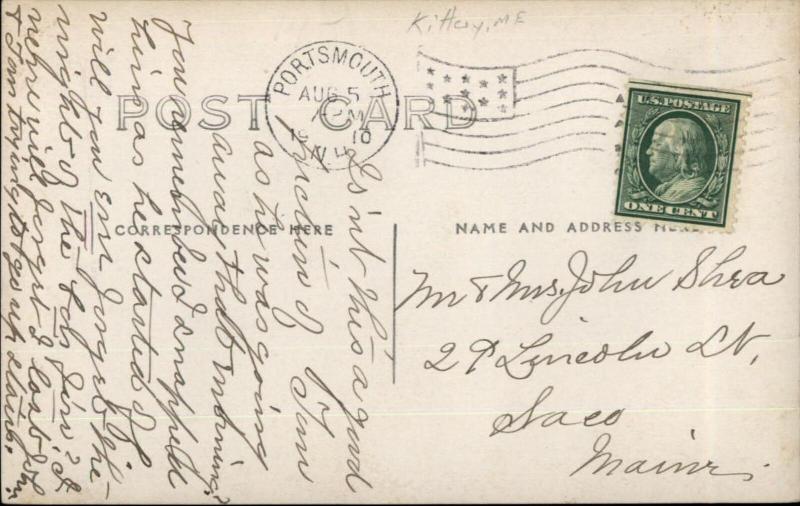 Kittery, ME
PORTSMOUTH
AUG 5
PM
10
N.H.
POST CARD
U.S. POSTAGE
ONE CENT
CORRESPONDENCE HERE
NAME AND ADDRESS HERE
Mr & Mrs. John Shea
29 Lincoln St,
Saco
Maine.
Isn't this a good
picture of Tom
as he was going
away that morning?
You remember I snapped
him as he started off
will you ever forget the
night of the Las Fin? I
never will forget I lost
& Tom trying to go up stairs.